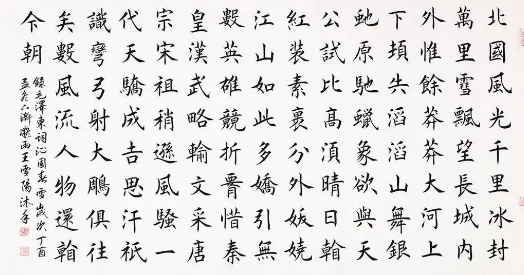 北國風光千里冰封
萬里雪飄望長城內
外惟餘莽莽大河上
下頓失滔滔山舞銀
虵原馳蠟象欲與天
公試比高須晴日看
紅裝素裹分外妖嬈
江山如此多嬌引無
數英雄競折腰惜秦
皇漢武略輸文采唐
宗宋祖稍遜風騷一
代天驕成吉思汗祇
識彎弓射大鵰俱往
矣數風流人物還看
今朝
錄毛澤東詞沁園春雪歲次丁酉
孟冬雨王雪陽沐手